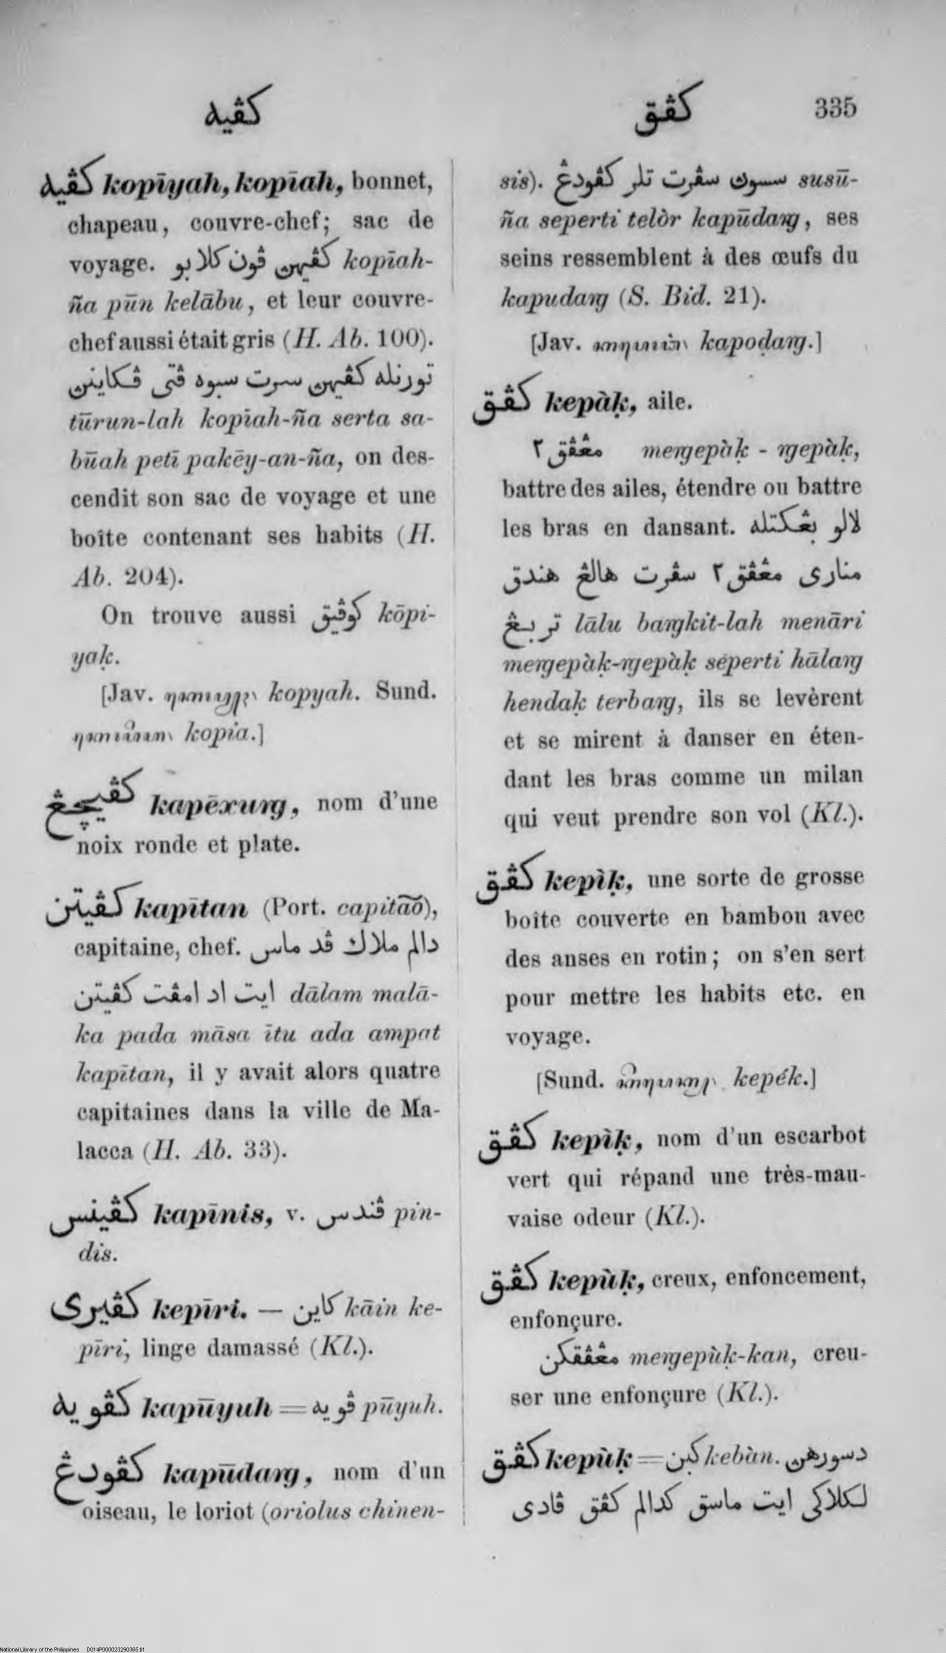 كڤيه
كڤق 335
كڤيه kopīyah, kopīah, bonnet,
chapeau, couvre-chef; sac de
voyage. كڤيهن ڤون كلابو kopīah-
ña pūn kelābu, et leur couvre-
chef aussi était gris (H. Ab. 100).
تورنله كڤيهن سرت سبوه ڤتى ڤكاينن
tūrun-lah kopīah-ña serta sa-
būah petī pakēy-an-ña, on des-
cendit son sac de voyage et une
boîte contenant ses habits (H.
Ab. 204).
On trouve aussi كوڤيق kōpi-
yaḳ.
[Jav. kopyah. Sund.
kopia.]
كڤيچڠ kapēxurg, nom d'une
noix ronde et plate.
كڤيتن kapītan (Port. capitāō),
capitaine, chef. دالم ملاك ڤد ماس
ايت اد امڤت كڤيتن dālam malā-
ka pada māsa ītu ada ampat
kapītan, il y avait alors quatre
capitaines dans la ville de Ma-
lacca (H. Ab. 33).
كڤينس kapīnis, v. ڤندس pin-
dis.
كڤيرى kepīri. — كاين kāin ke-
pīri, linge damassé (Kl.).
كڤويه kapūyuh = ڤويه pūyuh.
كڤودڠ kapūdarg, nom d'un
oiseau, le loriot (oriolus chinen-
sis). سسون سڤرت تلر كڤودڠ susū-
ña seperti telòr kapūdarg, ses
seins ressemblent à des œufs du
kapudarg (S. Bid. 21).
[Jav. kapoḍarg.]
كڤق kepàḳ, aile.
مڠڤق ٢ mergepàḳ - rgepàḳ,
battre des ailes, étendre ou battre
les bras en dansant. لالو بڠكتله
منارى مڠڤق ٢ سڤرت هالڠ هندق
تربڠ lālu bargkit-lah menāri
mergepàḳ-rgepàḳ séperti hālarg
hendaḳ terbarg, ils se levèrent
et se mirent à danser en éten-
dant les bras comme un milan
qui veut prendre son vol (Kl.).
كڤق kepìḳ, une sorte de grosse
boîte couverte en bambou avec
des anses en rotin; on s'en sert
pour mettre les habits etc. en
voyage.
[Sund. kepék.]
كڤق kepìḳ, nom d'un escarbot
vert qui répand une très-mau-
vaise odeur (Kl.).
كڤق kepùḳ, creux, enfoncement,
enfonçure.
مڠڤقكن mergepùḳ-kan, creu-
ser une enfonçure (Kl.).
كڤق kepùḳ = كبن kebàn. دسورهن
لكلاكى ايت ماسق كدالم كڤق ڤادى
National Library of the Philippines